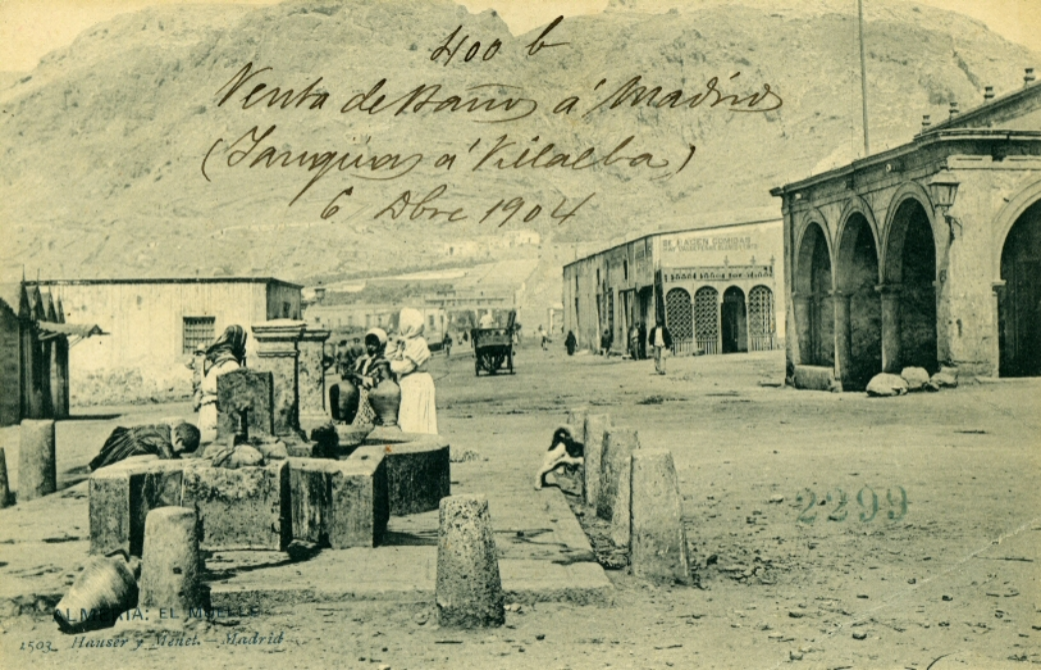 400 b
Venta de Baños á Madrid
(Sanguino á Villalba)
6 Dbre 1904
DE COMIDAS
2299
ALMERIA: EL MUELLE
1503. Hauser y Menet. — Madrid